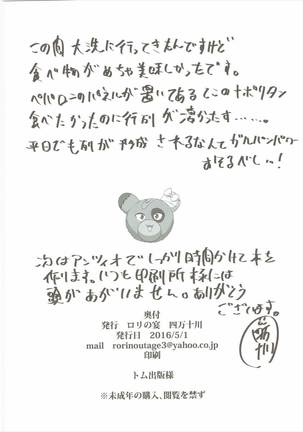 この間 大洗に行ってきたんですけど
食べ物がめちゃ美味しかったです。
ペパロニのパネルが置いてあるとこのナポリタン
食べたかったのに行列が凄かったす……。
平日でも列が形成されるなんてガルパンパワー
おそるべし…!
次はアンツィオでしっかり時間かけて本を
作ります。いつも印刷所様には
頭があがいません。ありがとう
ございます。
四万十川
奥付
発行 ロリの宴 四万十川
発行日 2016/5/1
mail rorinoutage3@yahoo.co.jp
印刷
トム出版様
※未成年の購入、閲覧を禁ず